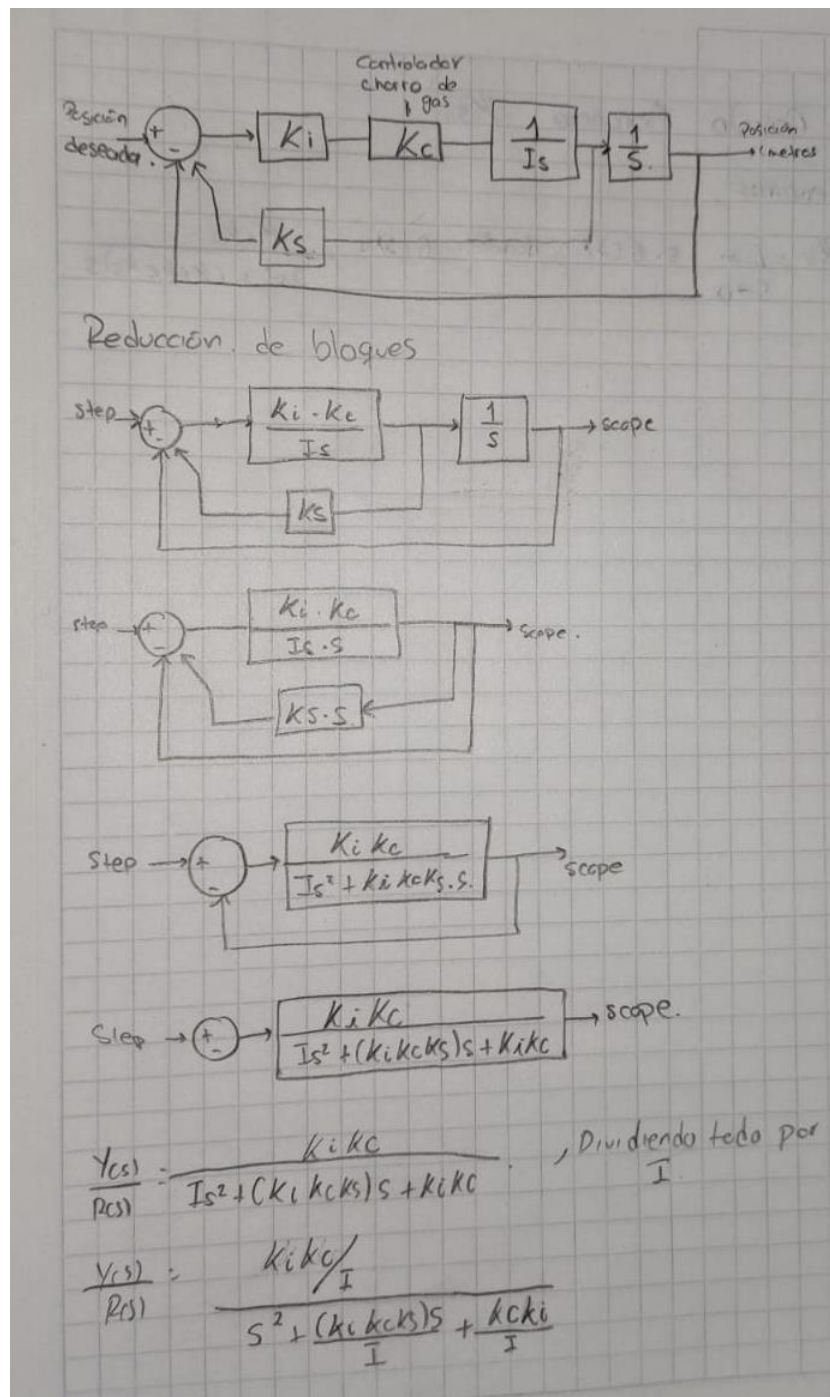 Controlador
chorro de
gas
Posición
deseada.
+
-
Ki
Kc
1
Is
1
S.
Posición
(metros
Ks
Reducción de bloques
step
+
-
Ki . Kc
Is
1
s
scope
Ks
step
+
-
Ki . Kc
Is . s
scope.
Ks . s
Step
+
-
Ki Kc
Is² + Ki Kc Ks . s.
scope
Step
+
-
Ki Kc
Is² + (Ki Kc Ks)s + Ki Kc
scope.
Y(s) = Ki Kc , Dividiendo todo por
R(s) Is² + (Ki Kc Ks)s + Ki Kc I
Y(s) = Ki Kc/I
R(s) s² + (Ki Kc Ks)s + Kc Ki
I I